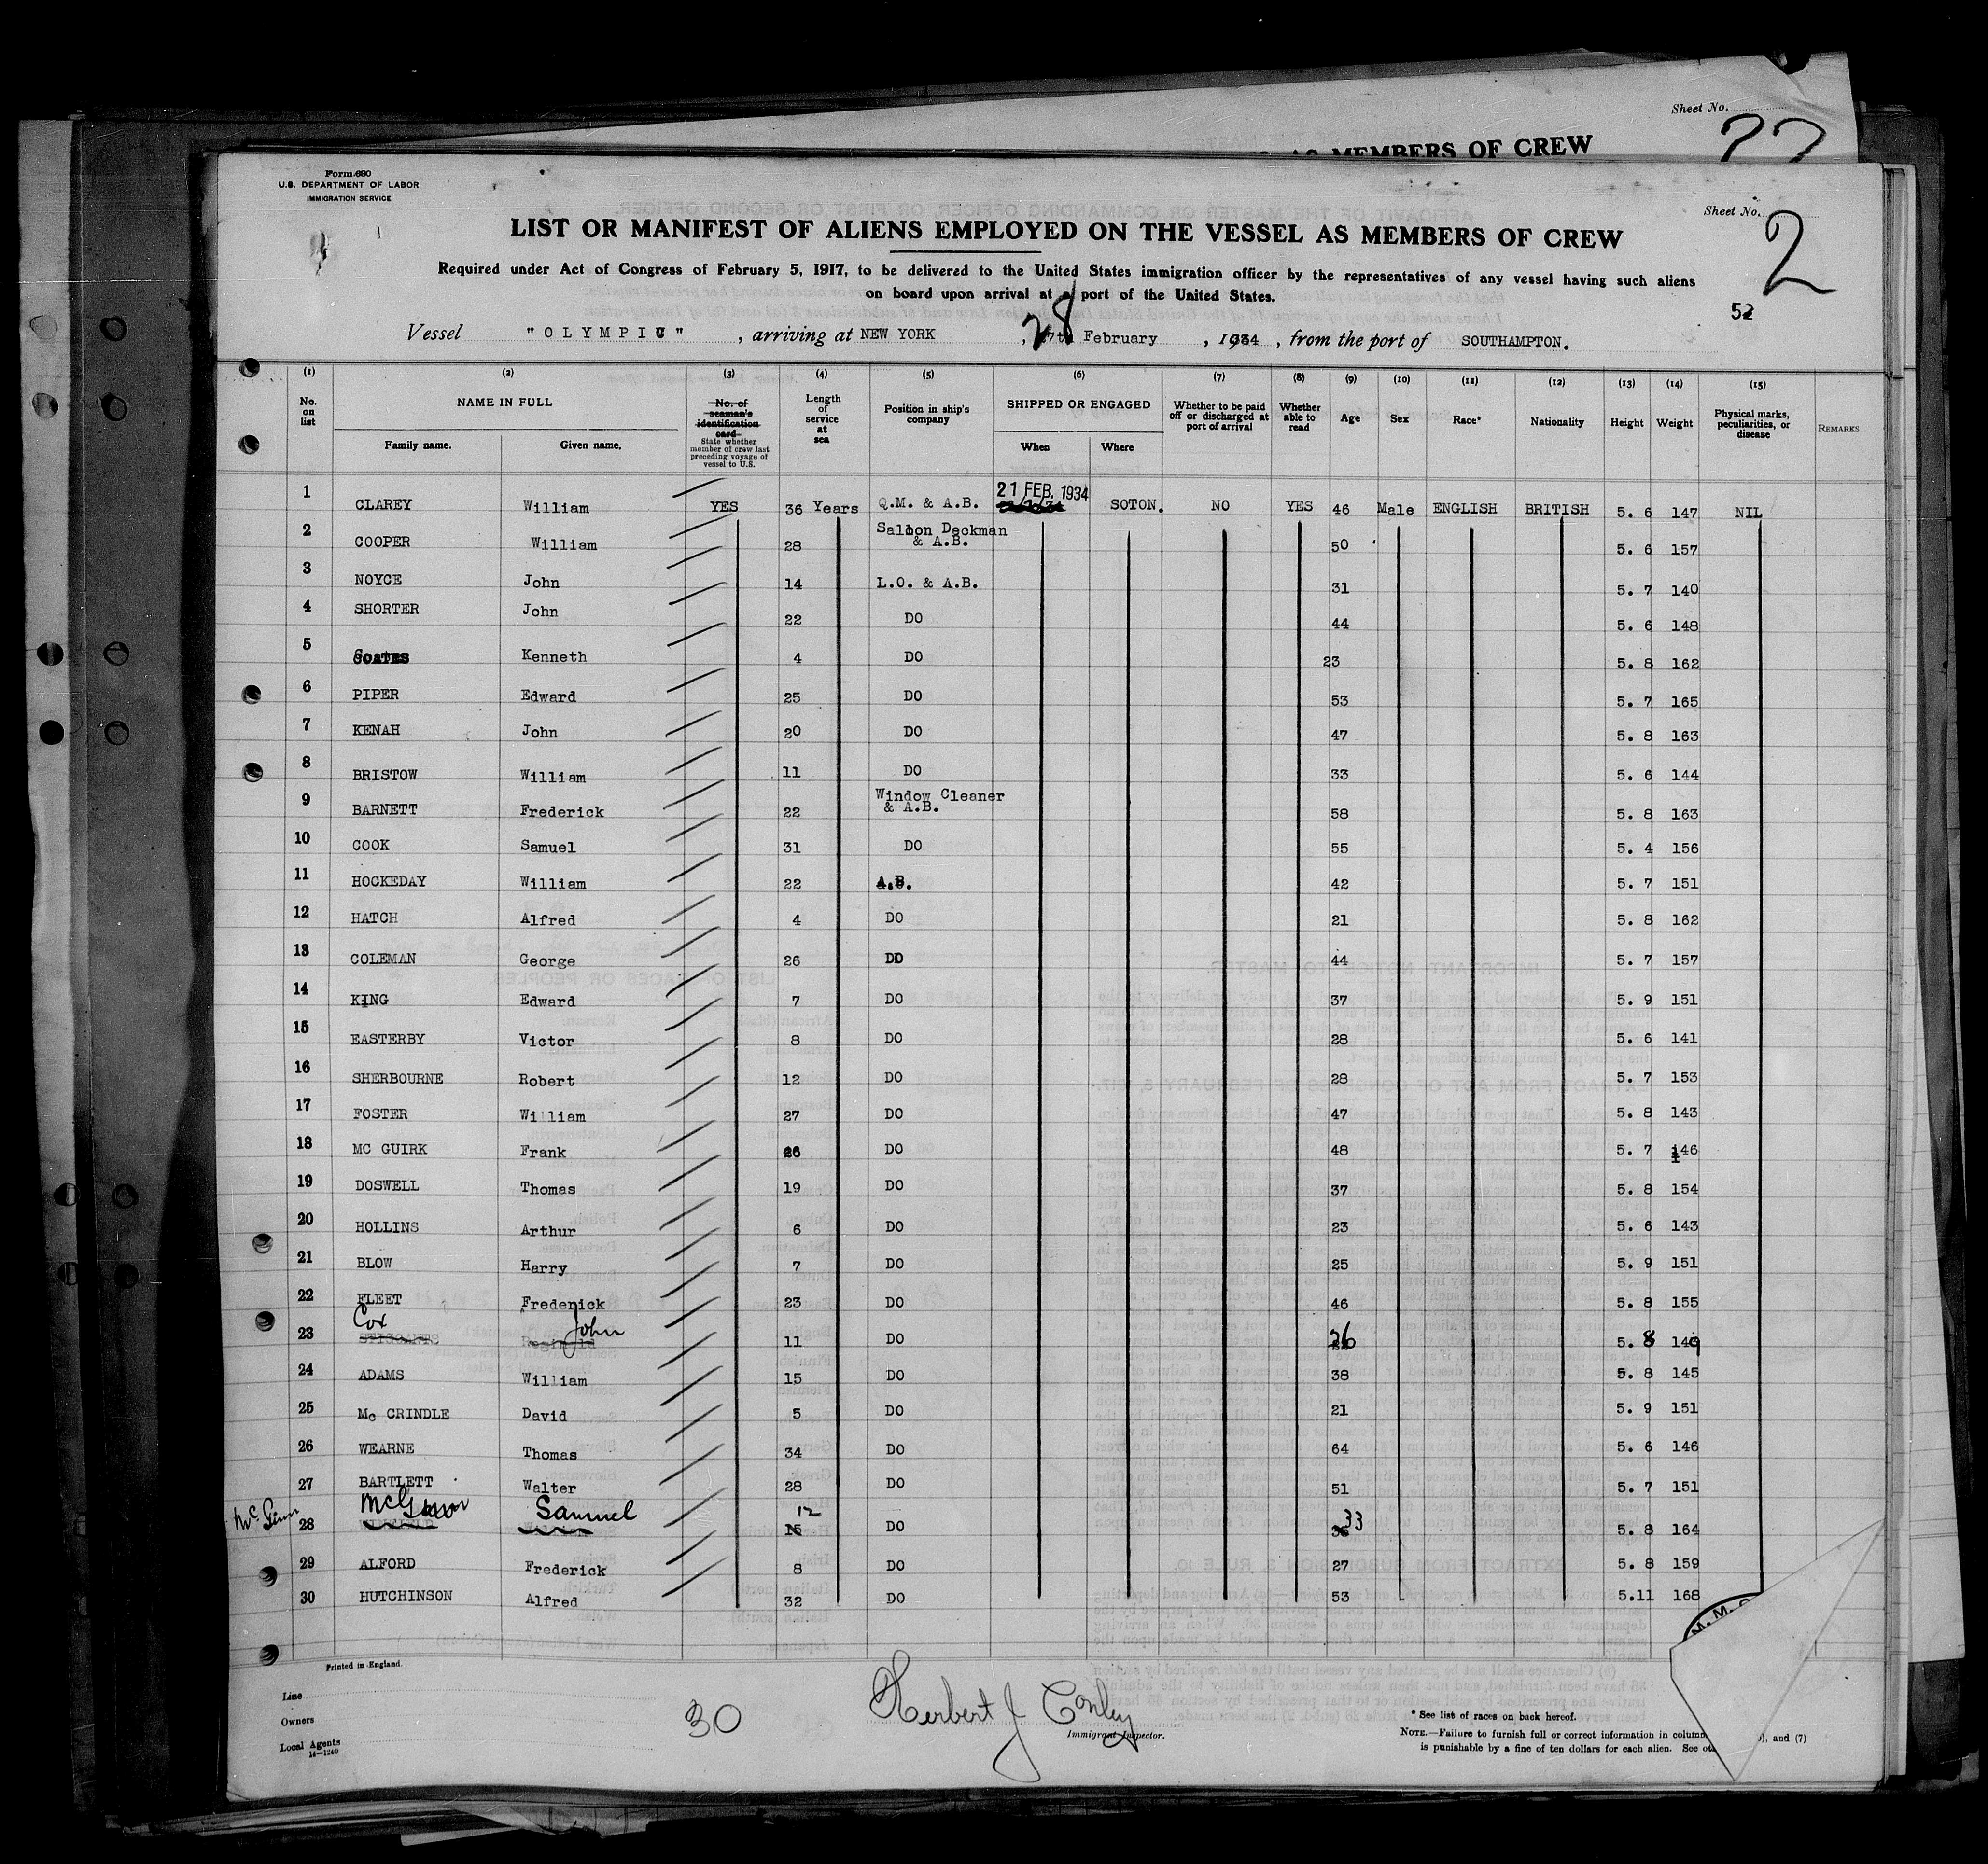 Sheet No.
AS MEMBERS OF CREW
Form 680
U.S. DEPARTMENT OF LABOR
IMMIGRATION SERVICE
Sheet No. 2
LIST OR MANIFEST OF ALIENS EMPLOYED ON THE VESSEL AS MEMBERS OF CREW
Required under Act of Congress of February 5, 1917, to be delivered to the United States immigration officer by the representatives of any vessel having such aliens
on board upon arrival at a port of the United States.
52
Vessel "OLYMPIC", arriving at NEW YORK, 28 February, 1934, from the port of SOUTHAMPTON.
(1) (2) (3) (4) (5) (6) (7) (8) (9) (10) (11) (12) (13) (14) (15)
No. on list
NAME IN FULL
Family name. Given name.
No. of seaman's identification card
State whether member of crew last preceding voyage of vessel to U.S.
Length of service at sea
Position in ship's company
SHIPPED OR ENGAGED
When Where
Whether to be paid off or discharged at port of arrival
Whether able to read
Age
Sex
Race*
Nationality
Height
Weight
Physical marks, peculiarities, or disease
REMARKS
1 CLAREY William YES 36 Years Q.M. & A.B. 21 FEB. 1934 SOTON. NO YES 46 Male ENGLISH BRITISH 5. 6 147 NIL
2 COOPER William 28 Saloon Deckman & A.B. 50 5. 6 157
3 NOYCE John 14 L.O. & A.B. 31 5. 7 140
4 SHORTER John 22 DO 44 5. 6 148
5 COATES Kenneth 4 DO 23 5. 8 162
6 PIPER Edward 25 DO 53 5. 7 165
7 KENAH John 20 DO 47 5. 8 163
8 BRISTOW William 11 DO 33 5. 6 144
9 BARNETT Frederick 22 Window Cleaner & A.B. 58 5. 8 163
10 COOK Samuel 31 DO 55 5. 4 156
11 HOCKEDAY William 22 A.B. 42 5. 7 151
12 HATCH Alfred 4 DO 21 5. 8 162
13 COLEMAN George 26 DD 44 5. 7 157
14 KING Edward 7 DO 37 5. 9 151
15 EASTERBY Victor 8 DO 28 5. 6 141
16 SHERBOURNE Robert 12 DO 28 5. 7 153
17 FOSTER William 27 DO 47 5. 8 143
18 MC GUIRK Frank 26 DO 48 5. 7 146
19 DOSWELL Thomas 19 DO 37 5. 8 154
20 HOLLINS Arthur 6 DO 23 5. 6 143
21 BLOW Harry 7 DO 25 5. 9 151
22 FLEET Frederick 23 DO 46 5. 8 155
23 Cox John 11 DO 26 5. 8 149
24 ADAMS William 15 DO 38 5. 8 145
25 Mc CRINDLE David 5 DO 21 5. 9 151
26 WEARNE Thomas 34 DO 64 5. 6 146
27 BARTLETT Walter 28 DO 51 5. 7 151
28 Samuel 12 DO 33 5. 8 164
29 ALFORD Frederick 8 DO 27 5. 8 159
30 HUTCHINSON Alfred 32 DO 53 5.11 168
Printed in England.
Line
Owners
Local Agents
14—1240
30
Herbert J Conley
Immigrant Inspector.
* See list of races on back hereof.
NOTE.—Failure to furnish full or correct information in column ), and (7)
is punishable by a fine of ten dollars for each alien. See